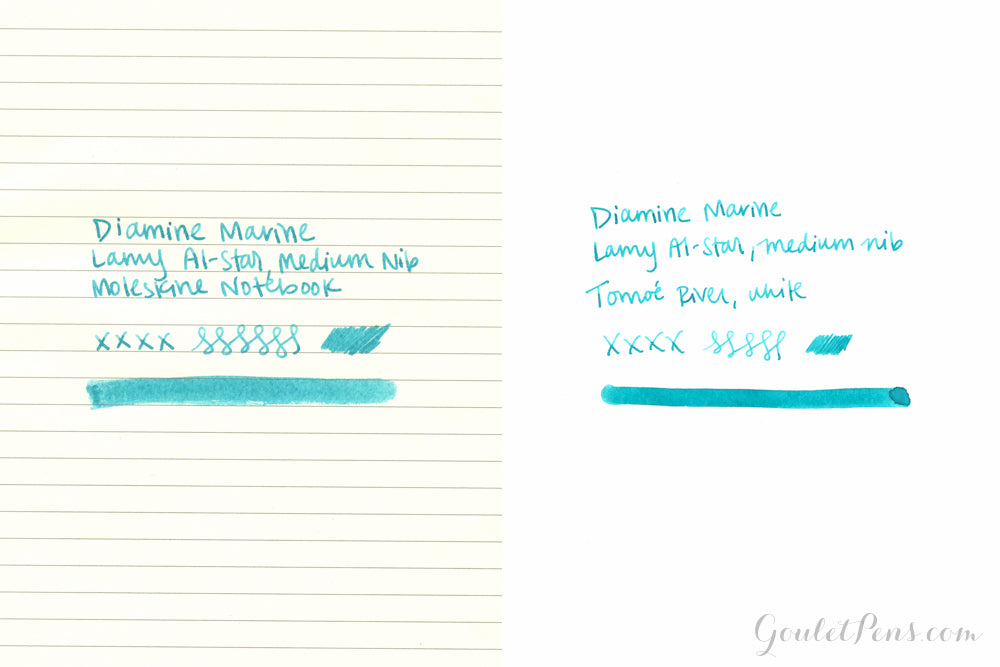 Diamine Marine
Lamy Al-Star, Medium Nib
Moleskine Notebook
xxxx
Diamine Marine
Lamy Al-Star, medium nib
Tomoé River, white
xxxx
GouletPens.com